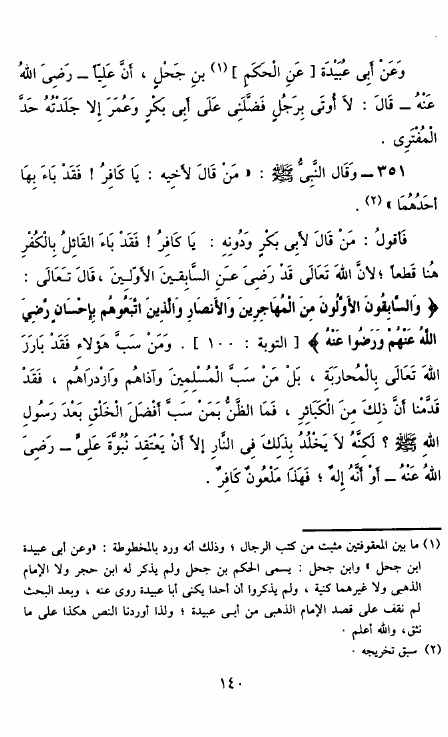 وَعَنْ أَبِى عُبَيْدَةَ [ عَنِ الْحَكَمِ ] (١) بنِ جَحْلٍ ، أَنَّ عَلِيّاً ــ رَضِىَ اللهُ
عَنْهُ ــ قَالَ : لاَ أُوتَى بِرَجُلٍ فَضَّلَنِى عَلَى أَبِى بَكْرٍ وَعُمَرَ إلا جَلَدْتُهُ حَدَّ
الْمُفْتَرِى .
٣٥١ ــ وَقَالَ النَّبِىُّ ﷺ : « مَنْ قَالَ لأخِيه : يَا كَافِرُ ! فَقَدْ بَاءَ بِهَا
أحَدُهُمَا » (٢) .
فَأقولُ : مَنْ قَالَ لأبِى بَكْرٍ وَدُونِهِ : يَا كَافِرُ ! فَقَدْ بَاءَ القَائِلُ بِالْكُفْرِ
هُنا قَطعاً ؛ لأنَّ اللهَ تَعَالَى قَدْ رَضِىَ عَنِ السَّابِقينَ الأوَّلينَ ، قَالَ تَعَالَى :
﴿ وَالسَّابِقُونَ الأوَّلُونَ مِنَ المُهَاجِرِينَ وَالأنصَارِ وَالَّذِينَ اتَّبَعُوهُم بِإحْسَانٍ رَّضِىَ
اللَّهُ عَنْهُمْ وَرَضُوا عَنْهُ ﴾ [ التوبة : ١٠٠ ] . وَمَنْ سَبَّ هؤلاءِ فَقَدْ بَارَزَ
اللهَ تَعَالَى بِالْمُحَارَبَةِ ، بَلْ مَنْ سَبَّ المُسْلِمِينَ وَآذَاهُم وَازْدَرَاهُم ، فَقَدْ
قَدَّمْنا أنَّ ذلِكَ مِنَ الكَبَائِرِ ، فَمَا الظَّنُّ بِمَنْ سَبَّ أفْضَلَ الْخَلْقِ بَعْدَ رَسُولِ
اللهِ ﷺ ؟ لَكِنَّهُ لاَ يَخْلُدُ بِذَلِكَ فِى النَّارِ إلاَّ أنْ يَعْتَقِدَ نُبُوَّةَ عَلِىٍّ ــ رَضِىَ
اللهُ عَنْهُ ــ أوْ أنَّهُ إلهٌ ؛ فَهَذَا مَلْعُونٌ كَافِرٌ .
(١) ما بين المعقوفتين مثبت من كتب الرجال ؛ وذلك أنه ورد بالمخطوطة : «وعن أبى عبيدة
ابن جحل » وابن جحل : يسمى الحكم بن جحل ولم يذكر له ابن حجر ولا الإمام
الذهبى ولا غيرهما كنية ، ولم يذكروا أن أحدا يكنى أبا عبيدة روى عنه ، وبعد البحث
لم نقف على قصد الإمام الذهبى من أبى عبيدة ؛ ولذا أوردنا النص هكذا على ما
نثق، والله أعلم .
(٢) سبق تخريجه .
١٤٠